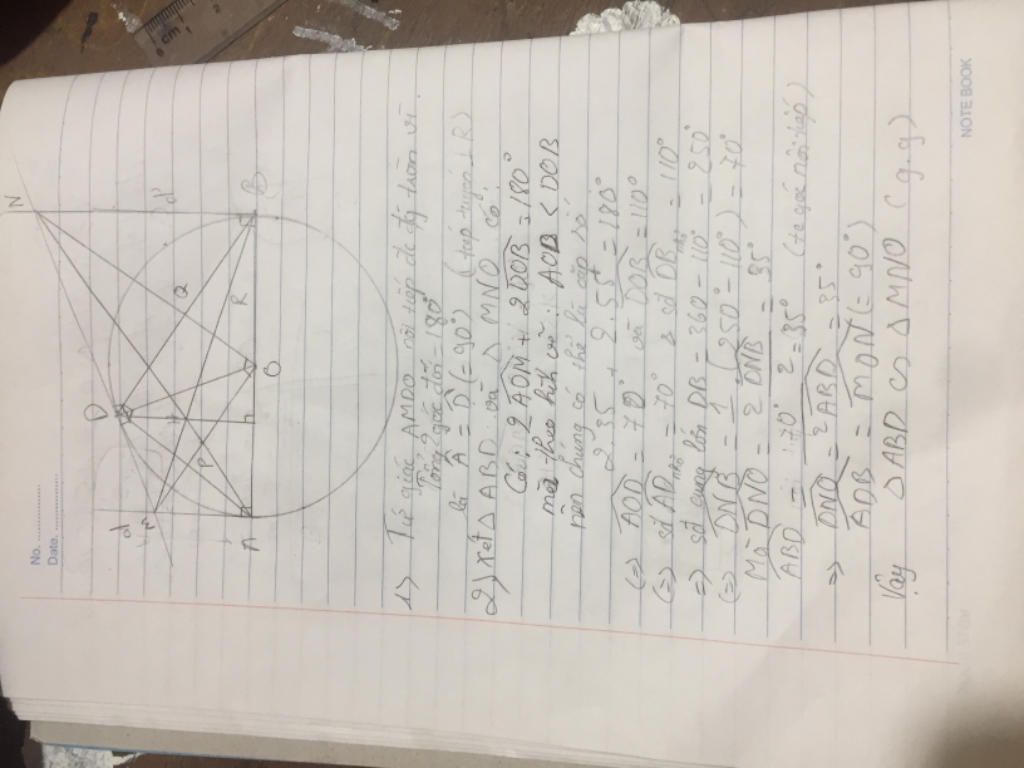 No.
Date.
d
d'
N
D
M
H
P
Q
R
A
h
O
B
1) Tứ giác AMDO nội tiếp đc đg tròn vì
Tổng 2 góc đối = 180°
là Â = D̂ (= 90°) (tiếp tuyến ⊥ R)
2) Xét △ ABD và △ MNO có:
Có: 2 AOM + 2 DOB = 180°
mà theo hình vẽ: AOD < DOB
nên chúng có thể là cặp số
2.35 + 2.55 = 180°
(=) AOD = 70° và DOB = 110°
(=) sđ AD nhỏ = 70° & sđ DB nhỏ = 110°
=> sđ cung lớn DB = 360 - 110° = 250°
(=) DNB = 1/2 (250° - 110°) = 70°
Mà DNO = 1/2 DNB = 35°
ABD = 1/2 70° = 35° (t/c góc nội tiếp)
=> DNO = ABD = 35°
ADB = MON (= 90°)
Vậy △ ABD ∽ △ MNO (g.g)
NOTEBOOK
cm 1